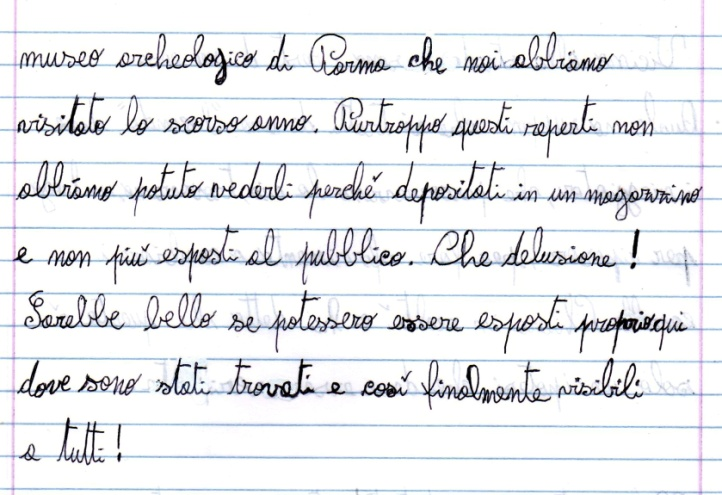 museo archeologico di Parma che noi abbiamo
visitato lo scorso anno. Purtroppo questi reperti non
abbiamo potuto vederli perchè depositati in un magazzino
e non più esposti al pubblico. Che delusione!
Sarebbe bello se potessero essere esposti proprio qui
dove sono stati trovati e così finalmente visibili
a tutti!